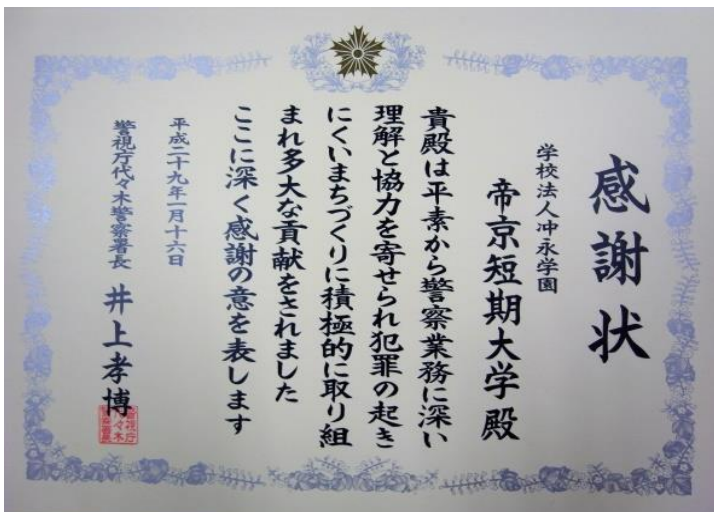 感謝状
学校法人冲永学園
帝京短期大学殿
貴殿は平素から警察業務に深い
理解と協力を寄せられ犯罪の起き
にくいまちづくりに積極的に取り組
まれ多大な貢献をされました
ここに深く感謝の意を表します
平成二十九年一月十六日
警視庁代々木警察署長 井上孝博
警視庁
代々木
警察署長